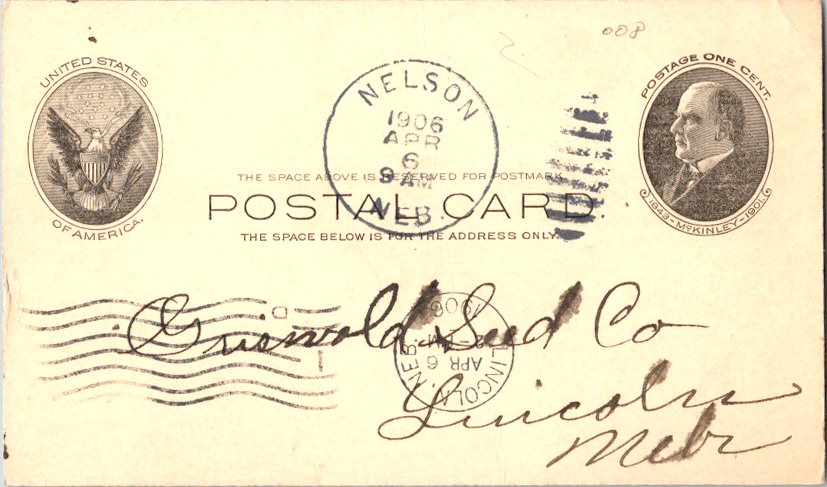 008
UNITED STATES
OF AMERICA.
NELSON
1906
APR
6
8 AM
NEB.
POSTAGE ONE CENT.
1843-McKINLEY-1901.
THE SPACE ABOVE IS RESERVED FOR POSTMARK.
POSTAL CARD
THE SPACE BELOW IS FOR THE ADDRESS ONLY.
D
1
Griswold Seed Co
LINCOLN, NEB.
APR 6
1906
Lincoln
Nebr